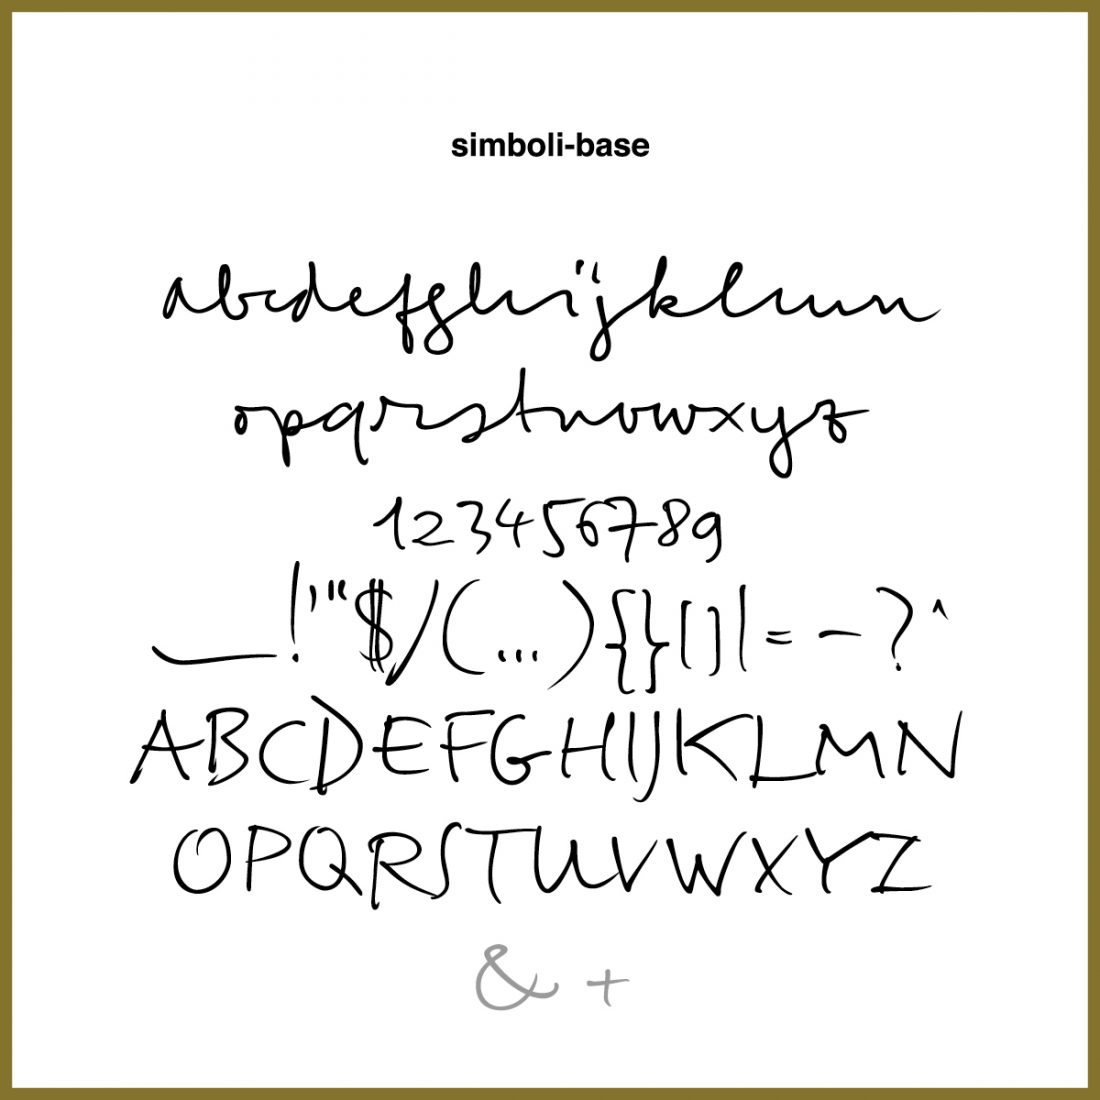 simboli-base
abcdefghijklmn
opqrstuvwxyz
123456789
_!'"$/(...){}[]|=-?^
ABCDEFGHIJKLMN
OPQRSTUVWXYZ
& +